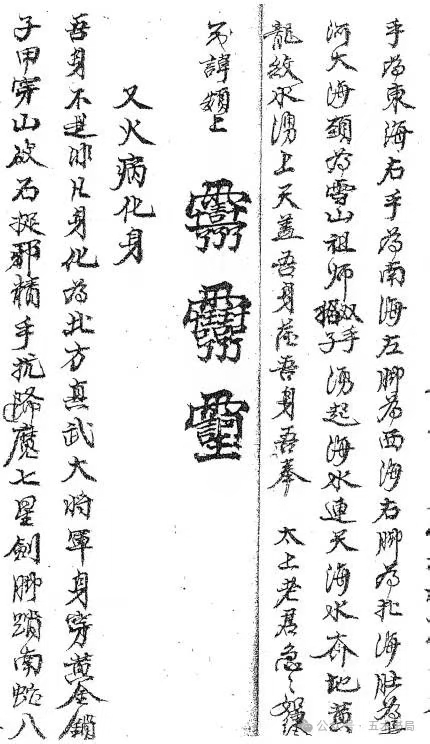 手為東海右手為南海左脚為西海右脚為北海肚為黃
河大海頭為雪山祖師双手搯子湧起海水連天海水齊地黃
龍紋水湧上天蓋吾身落吾身吾奉　太上老君急〻
諱頭上
又火病化身
吾身不是非凡身化為北方真武大將軍身穿黃金鎖
子甲穿山破石捉邪精手抗降魔七星劍脚踏南蛇八
公众号